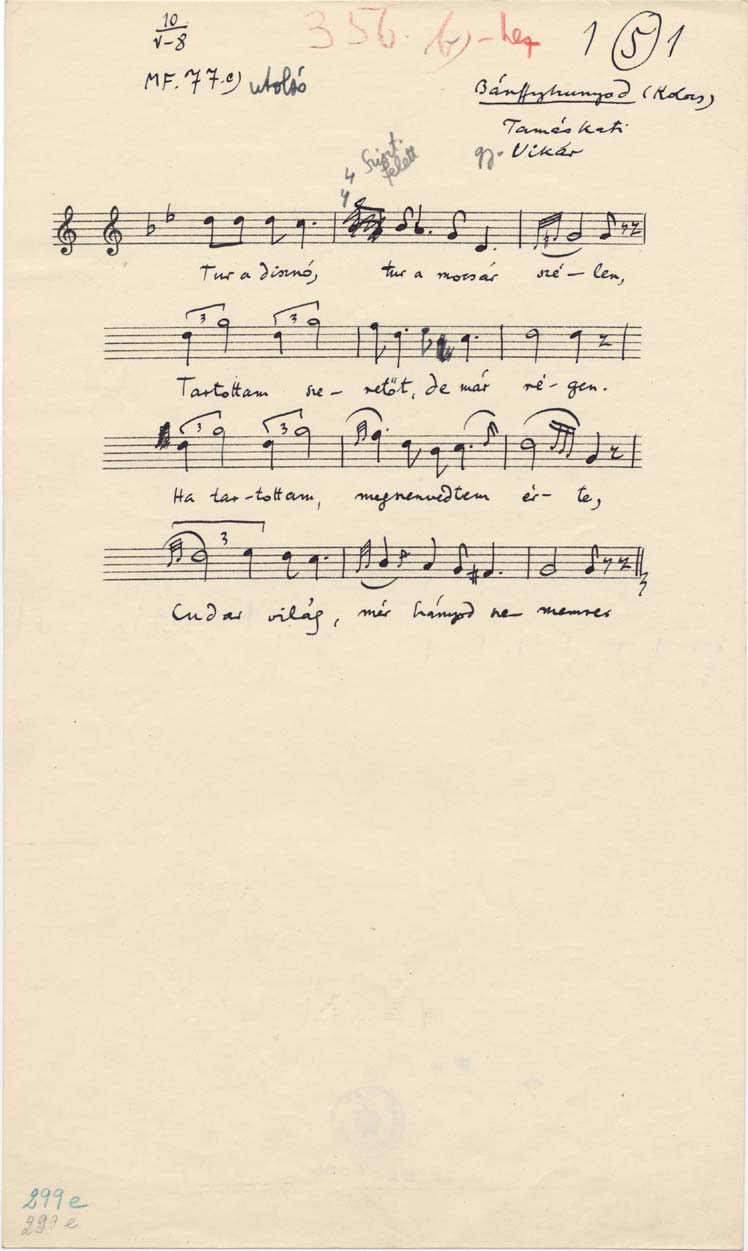 10
V-8
356. b) - hez
1 5 1
MF. 77.c) utolsó
Bánffyhunyod (Kolozs)
Tamás Kati
gy. Vikár
4
4
felett
Tur a disznó, tur a mocsár szé - len,
3 3
Tartottam sze - retőt, de már ré - gen.
3 3
Ha tar - tottam, megszenvedtem ér - te,
3
Cudar világ, mér hányod sze - memre
299 e
299 e